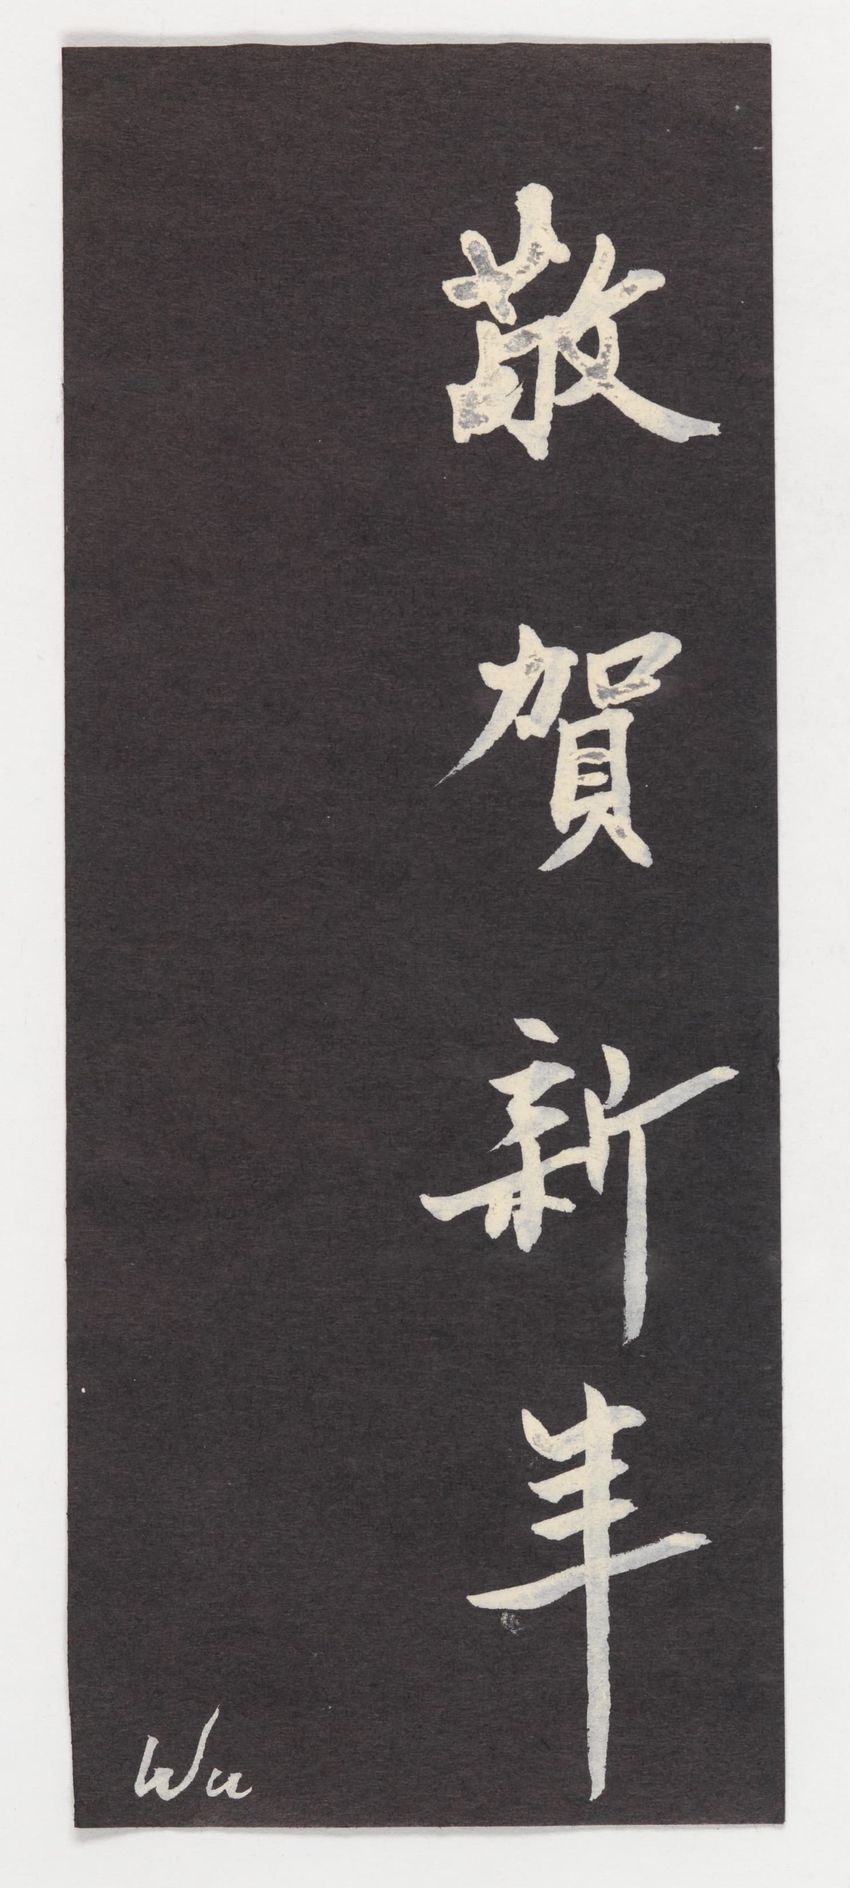 敬賀新年
Wu